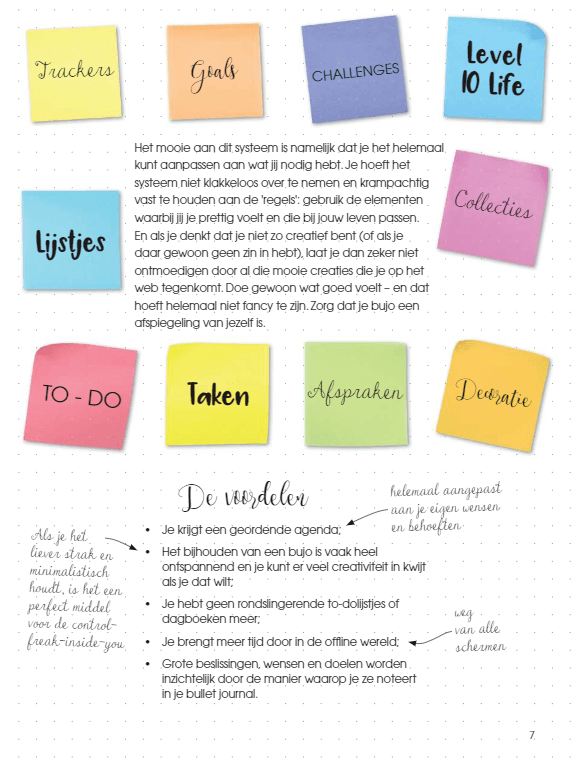 Trackers
Goals
CHALLENGES
Level
10 Life
Het mooie aan dit systeem is namelijk dat je het helemaal
kunt aanpassen aan wat jij nodig hebt. Je hoeft het
systeem niet klakkeloos over te nemen en krampachtig
vast te houden aan de 'regels': gebruik de elementen
waarbij jij je prettig voelt en die bij jouw leven passen.
En als je denkt dat je niet zo creatief bent (of als je
daar gewoon geen zin in hebt), laat je dan zeker niet
ontmoedigen door al die mooie creaties die je op het
web tegenkomt. Doe gewoon wat goed voelt – en dat
hoeft helemaal niet fancy te zijn. Zorg dat je bujo een
afspiegeling van jezelf is.
Lijstjes
Collecties
TO - DO
Taken
Afspraken
Decoratie
De voordelen
helemaal aangepast
aan je eigen wensen
en behoeften
• Je krijgt een geordende agenda;
• Het bijhouden van een bujo is vaak heel
ontspannend en je kunt er veel creativiteit in kwijt
als je dat wilt;
• Je hebt geen rondslingerende to-dolijstjes of
dagboeken meer;
• Je brengt meer tijd door in de offline wereld;
• Grote beslissingen, wensen en doelen worden
inzichtelijk door de manier waarop je ze noteert
in je bullet journal.
Als je het
liever strak en
minimalistisch
houdt, is het een
perfect middel
voor de control-
freak-inside-you
weg
van alle
schermen
7